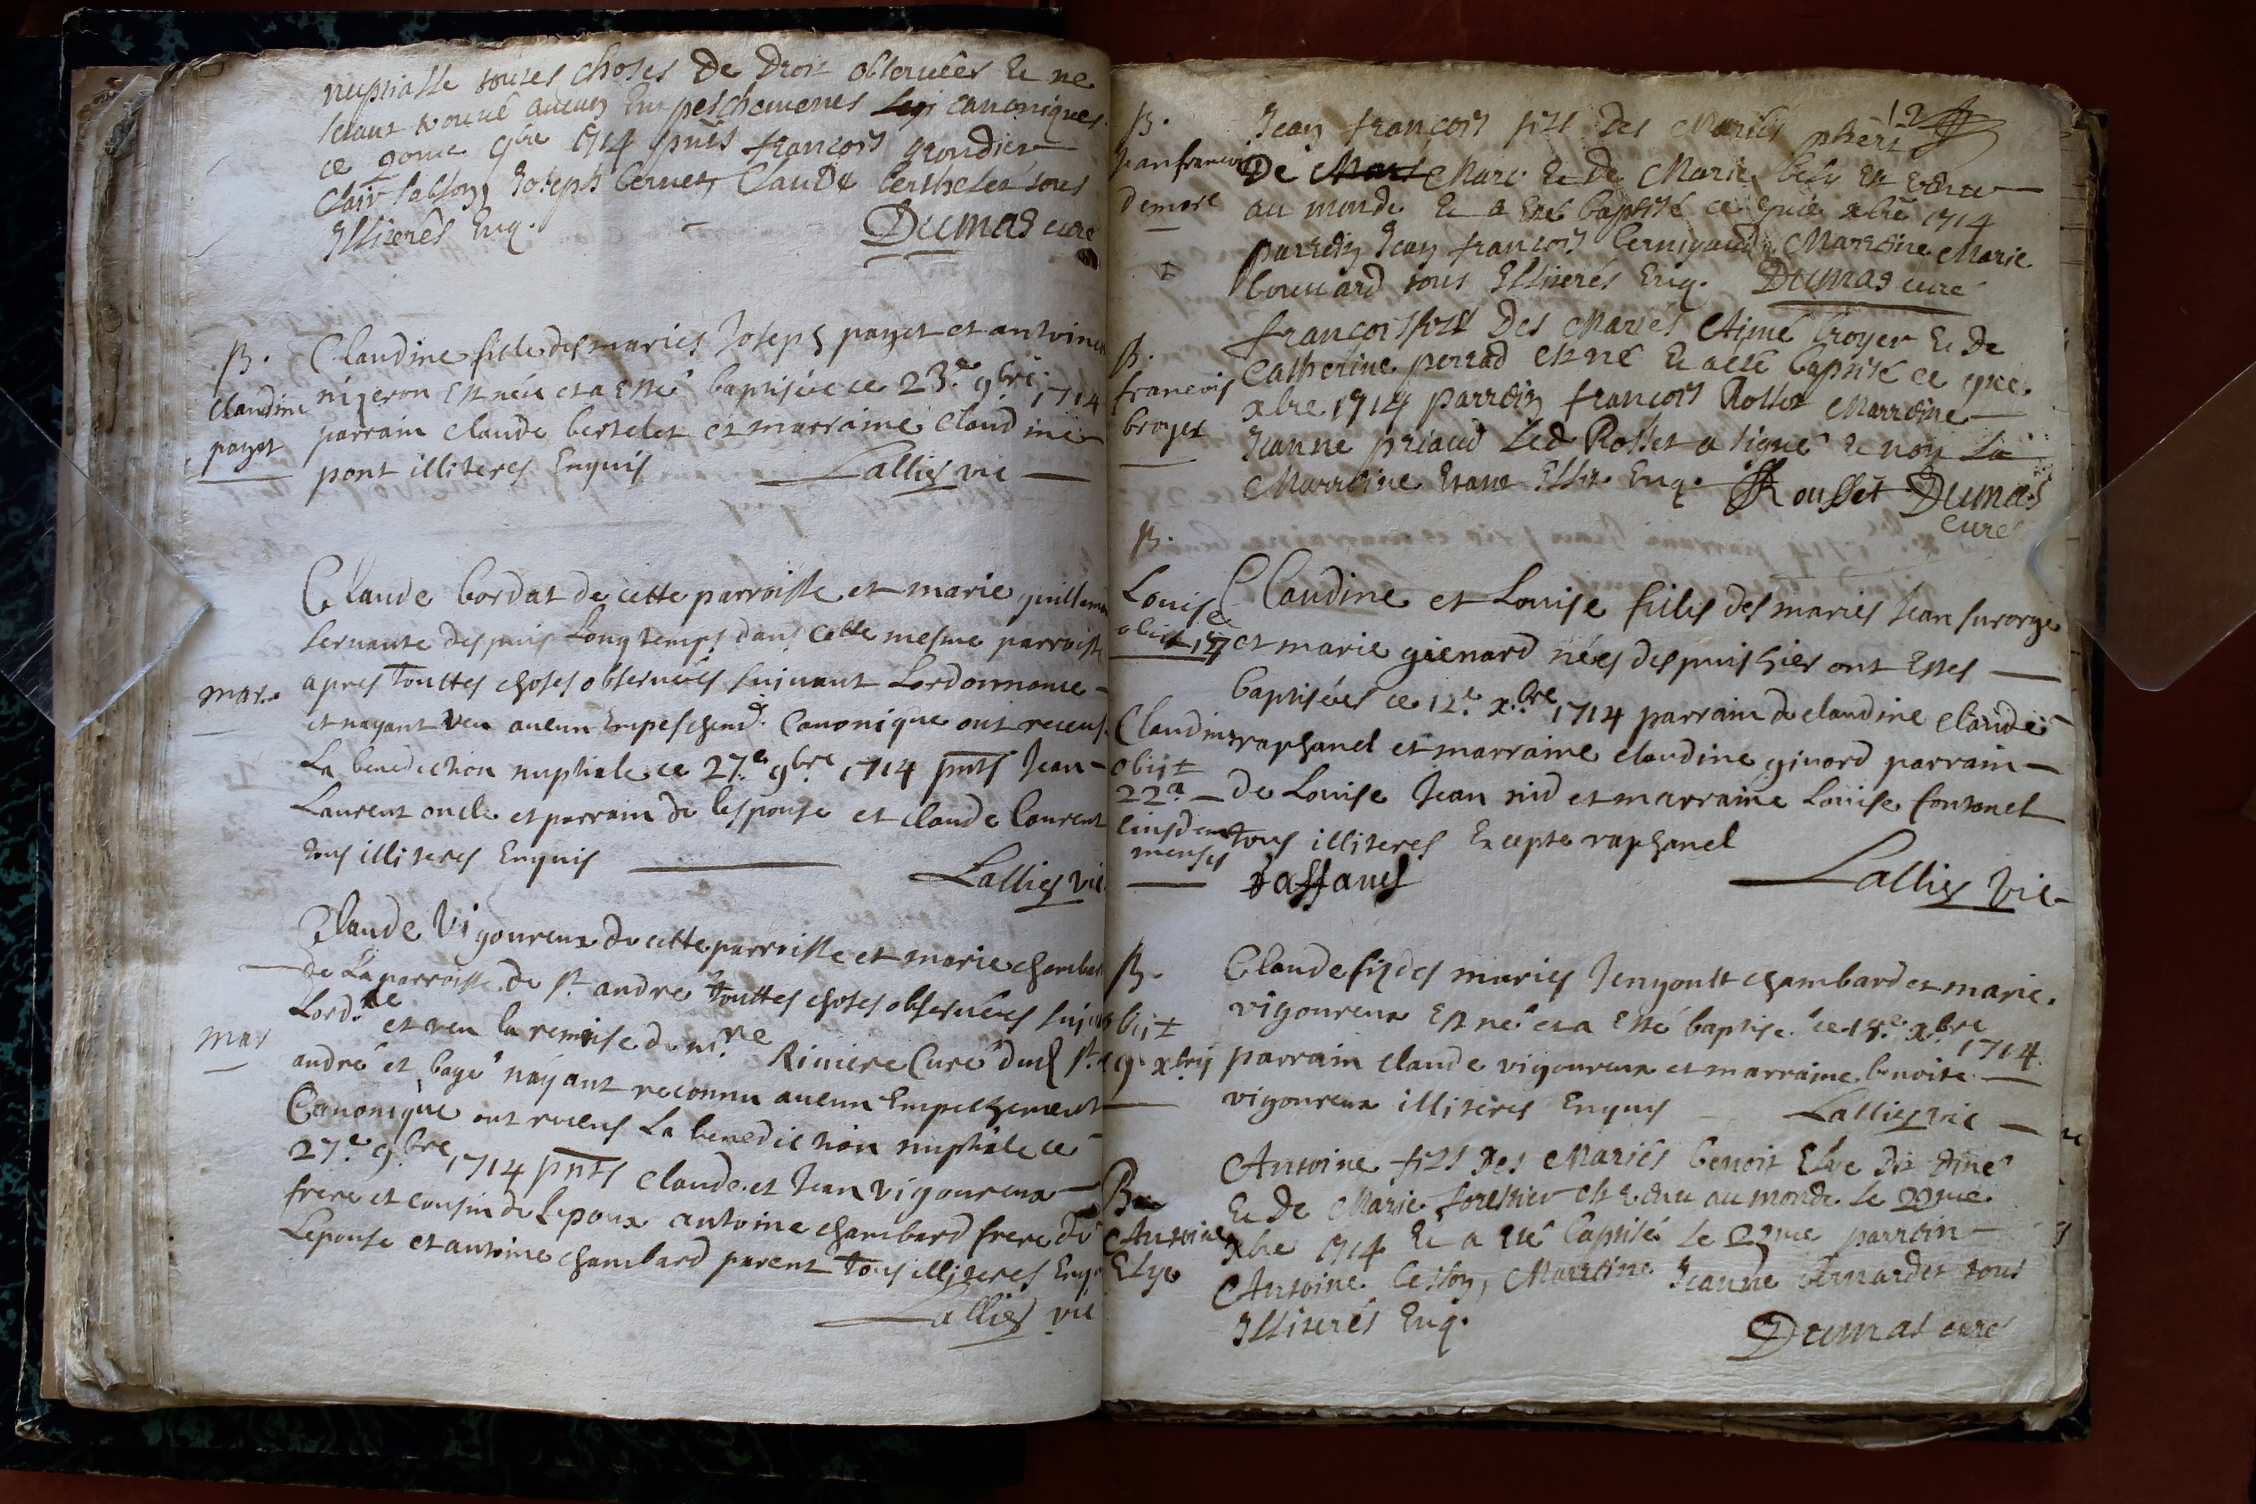 nuptialle toutes choses De Droit observées Et ne
setant trouvé aucun Empeschements canoniques
ce 9bre 1714 pnts françois grondier
Clair sablon, Joseph bernet, Claude berthelet tous
Illiterés Enq.
Dumas curé
B.
Claudine
payet
Claudine fille des mariés Joseph payet et antoine
nigeron Est née et a esté baptisée ce 23.e 9bre 1714
parrain claude bertelet et marraine claudine
pont illiteres Enquis Lallies vic
mar.
Claude bordat de cette parroisse et marie guillemin
servante despuis Long temps dans cette mesme parroisse
apres touttes choses observées suivant Lordonnance
et nayant veu aucun Empeschemt. Canonique ont receus
La benediction nuptiale ce 27.e 9bre 1714 pnts Jean
Laurent oncle et parrain de lespouse et claude laurent
tous illiteres Enquis
Lallies vic
mar
Claude Vigoureux de cette parroisse et marie chambard
de La parroisse de st. andre touttes choses observées suivant
Lord.ce et veu la remise de mre. Riviere Curé dud st.
andré et bagé nayant reconnu aucun Empechement
Canonique ont receus La benediction nuptiale ce
27.e 9bre 1714 pnts claude et Jean vigoureux
frere et cousin de Lepoux antoine chambard frere de
Lepouse et antoine chambard parent tous illiteres Enq
Lallies vic
12
B.
Jean francois
demore
Jean françois fils Des Mariés
De Marc Et De Marie bely Est venu
au monde Et a Eté baptisé ce xbre 1714
parrein Jean françois bernigaud Marreine Marie
bouvard tous Illiterés Enq. Dumas curé
B.
francois
broyer
françois fils Des Mariés Aimé broyer Et De
Catherine perrad Est né Et a eté baptisé ce
xbre 1714 parrein françois Rollet Marreine
Jeanne priaud Led Rosset a signé Et non La
Marreine Etant Illit. Enq. Rousset Dumas
curé
B.
Louise
obiit 14
Claudine
obiit
22a
eiusdem
mensis
Claudine et Louise filles des mariés Jean surorge
et marie gienard nées despuis hier ont Estes
baptisées ce 12.e x.bre 1714 parrain de claudine claude
raphanel et marraine claudine ginord parrain
de Louise Jean nid et marraine Louise fontanel
tous illiteres Excepte raphanel
Raffanel Lallies vic
B.
obiit
9. xbris
Claude fis des mariés Jengoult chambard et marie
vigoureux Est né et a Esté baptisé ce 18.e x.bre 1714.
parrain claude vigoureux et marraine benoite
vigoureux illiteres Enquis Lallies vic
B
Antoine
Elye
Antoine fils Des Mariés benoit Elye dit diné
Et De Marie forestier Est venu au monde Le 22me
xbre 1714 Et a Eté baptisé Le 22me parrein
Antoine besson, Marreine Jeanne bernardet tous
Illiterés Enq.
Dumas curé